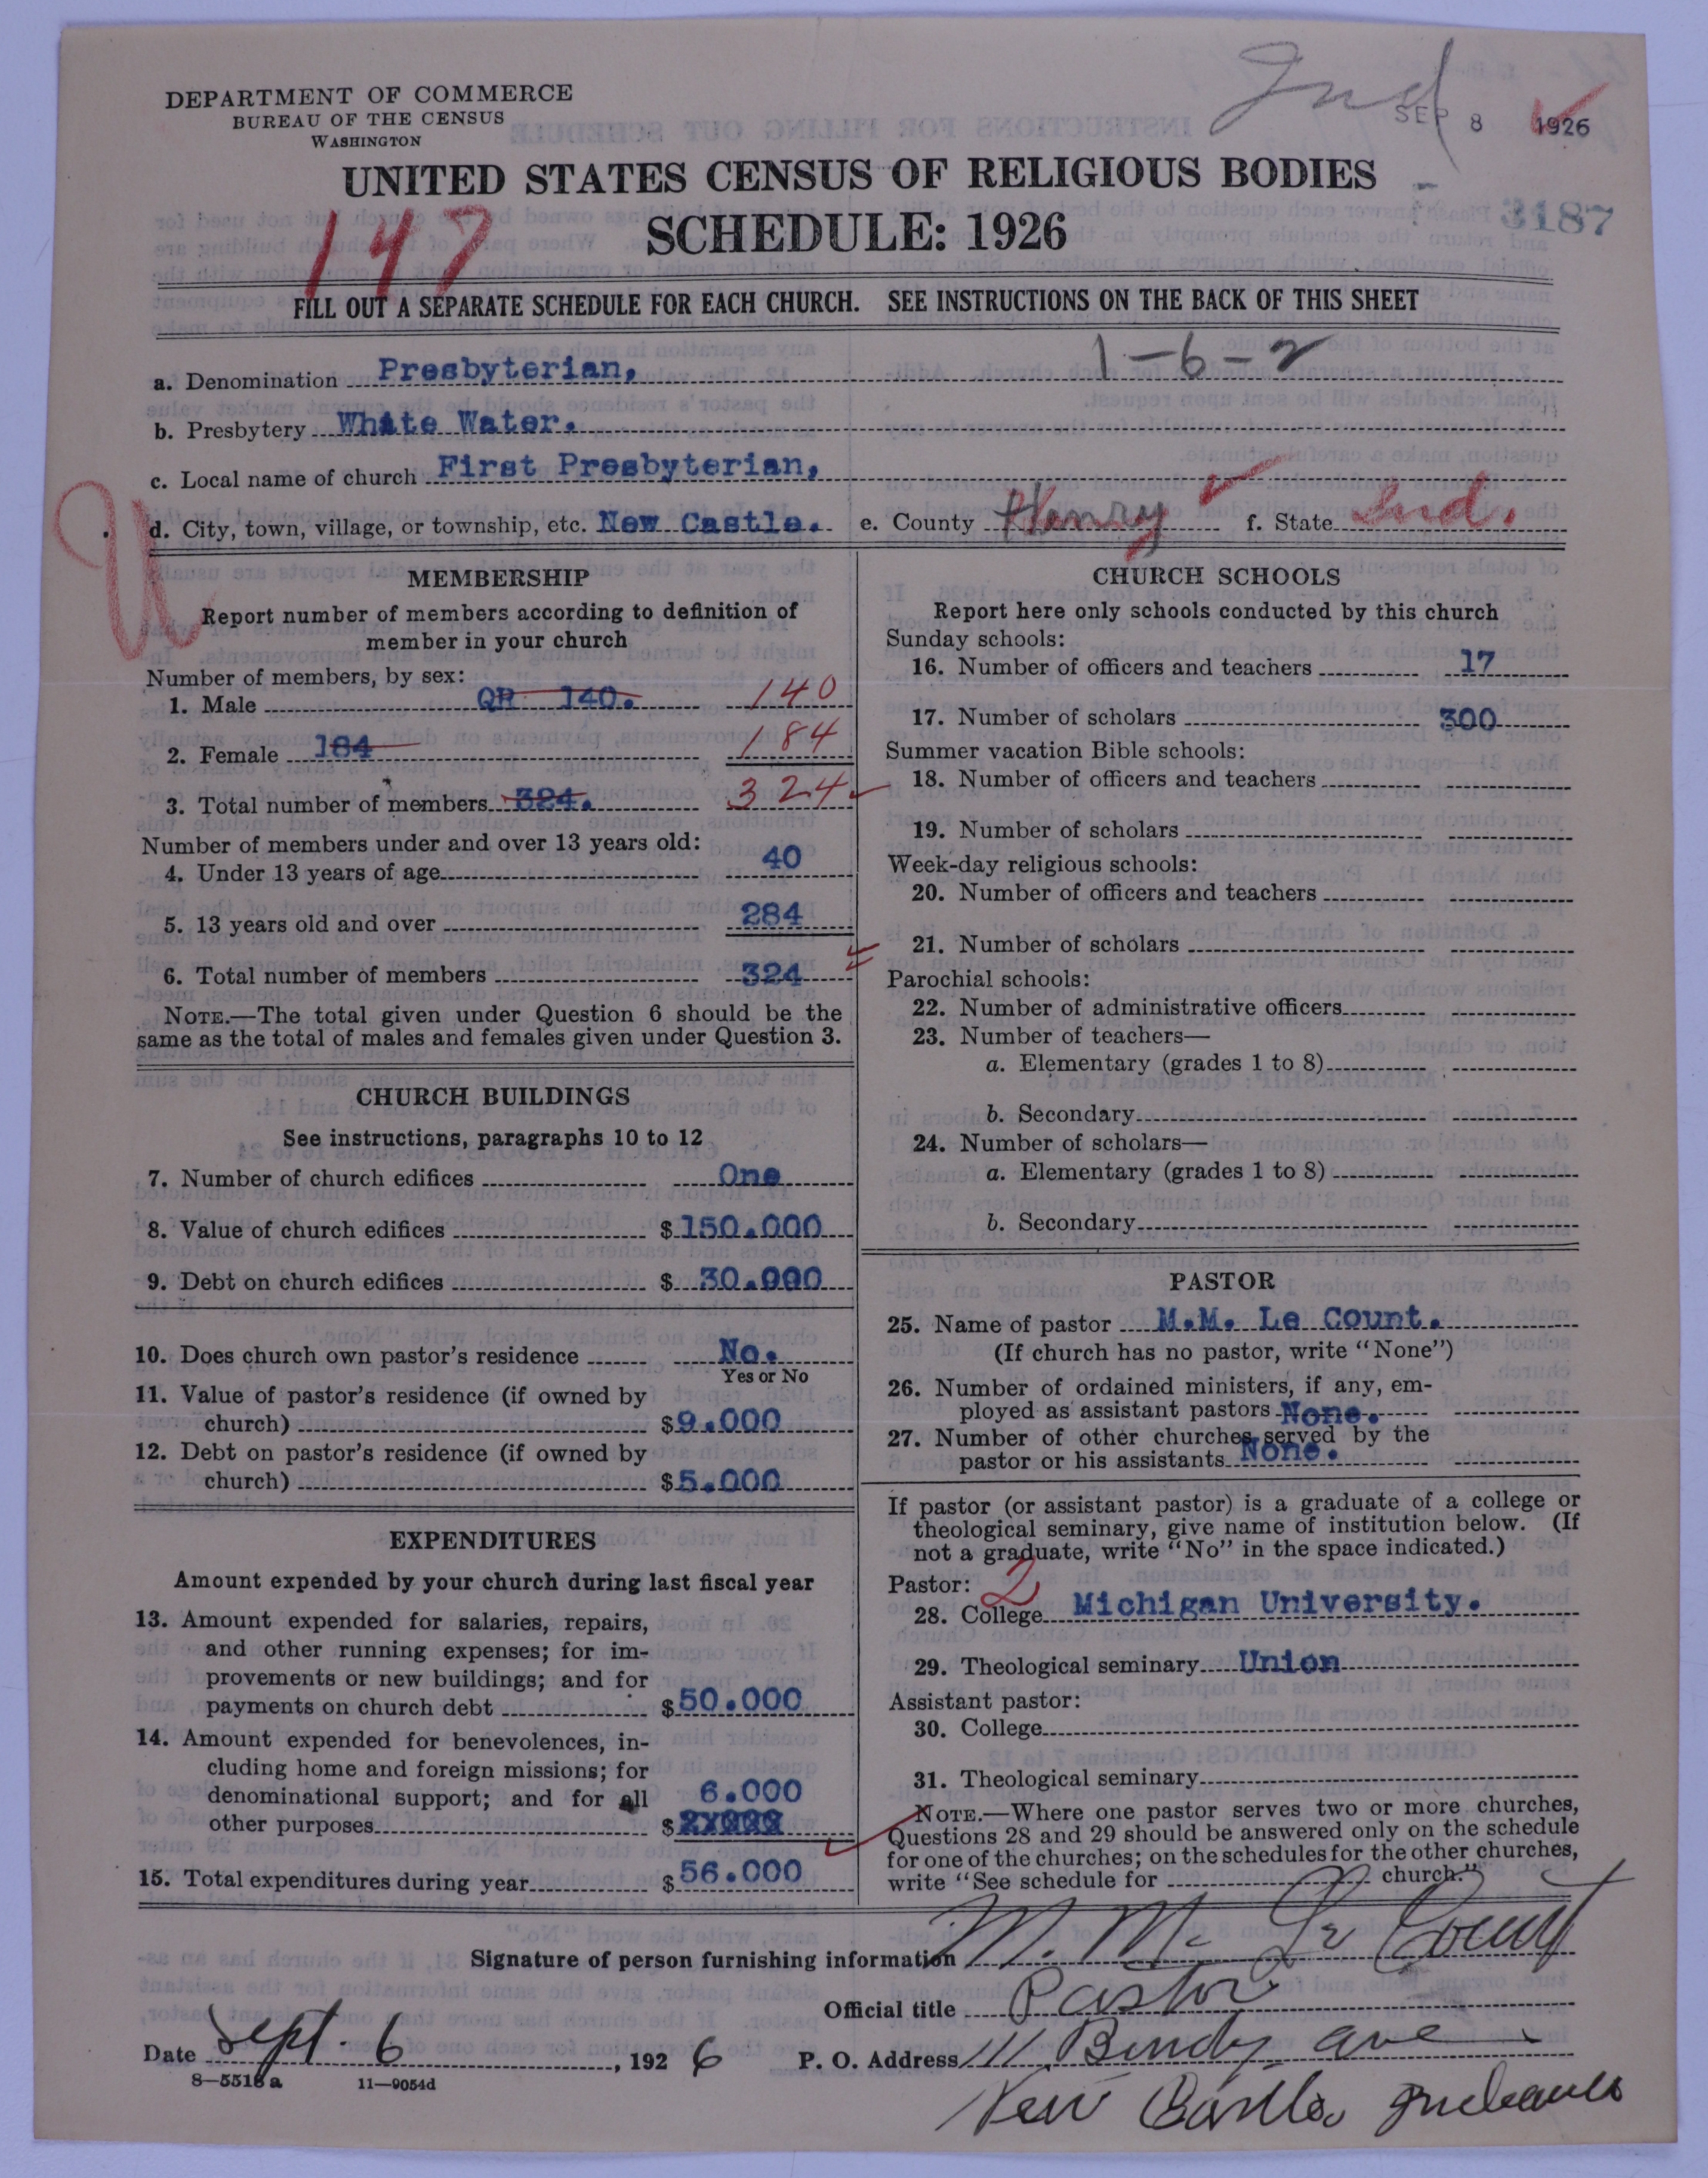 Ind
DEPARTMENT OF COMMERCE
BUREAU OF THE CENSUS
WASHINGTON
SEP 8 1926
UNITED STATES CENSUS OF RELIGIOUS BODIES
3187
147
SCHEDULE: 1926
FILL OUT A SEPARATE SCHEDULE FOR EACH CHURCH. SEE INSTRUCTIONS ON THE BACK OF THIS SHEET
1-6-2
a. Denomination Presbyterian,
b. Presbytery White Water.
c. Local name of church First Presbyterian,
U
d. City, town, village, or township, etc. New Castle. e. County Henry f. State Ind.
MEMBERSHIP
Report number of members according to definition of
member in your church
Number of members, by sex:
1. Male QR 140. 140
2. Female 184 184
3. Total number of members 324. 324
Number of members under and over 13 years old:
4. Under 13 years of age 40
5. 13 years old and over 284
6. Total number of members 324
NOTE.—The total given under Question 6 should be the
same as the total of males and females given under Question 3.
CHURCH BUILDINGS
See instructions, paragraphs 10 to 12
7. Number of church edifices One
8. Value of church edifices $150.000
9. Debt on church edifices $ 30.000
10. Does church own pastor's residence No.
Yes or No
11. Value of pastor's residence (if owned by
church) $9.000
12. Debt on pastor's residence (if owned by
church) $5.000
EXPENDITURES
Amount expended by your church during last fiscal year
13. Amount expended for salaries, repairs,
and other running expenses; for im-
provements or new buildings; and for
payments on church debt $50.000
14. Amount expended for benevolences, in-
cluding home and foreign missions; for
denominational support; and for all 6.000
other purposes $
15. Total expenditures during year $56.000
CHURCH SCHOOLS
Report here only schools conducted by this church
Sunday schools:
16. Number of officers and teachers 17
17. Number of scholars 300
Summer vacation Bible schools:
18. Number of officers and teachers
19. Number of scholars
Week-day religious schools:
20. Number of officers and teachers
21. Number of scholars
Parochial schools:
22. Number of administrative officers
23. Number of teachers—
a. Elementary (grades 1 to 8)
b. Secondary
24. Number of scholars—
a. Elementary (grades 1 to 8)
b. Secondary
PASTOR
25. Name of pastor M.M. Le Count.
(If church has no pastor, write "None")
26. Number of ordained ministers, if any, em-
ployed as assistant pastors None.
27. Number of other churches served by the
pastor or his assistants None.
If pastor (or assistant pastor) is a graduate of a college or
theological seminary, give name of institution below. (If
not a graduate, write "No" in the space indicated.)
Pastor: 2
28. College Michigan University.
29. Theological seminary Union
Assistant pastor:
30. College
31. Theological seminary
NOTE.—Where one pastor serves two or more churches,
Questions 28 and 29 should be answered only on the schedule
for one of the churches; on the schedules for the other churches,
write "See schedule for church."
Signature of person furnishing information M. M. Le Count
Official title Pastor
Date Sept. 6, 1926 P. O. Address 111 Bundy ave
8—5518a 11—9054d
New Castle, Indiana